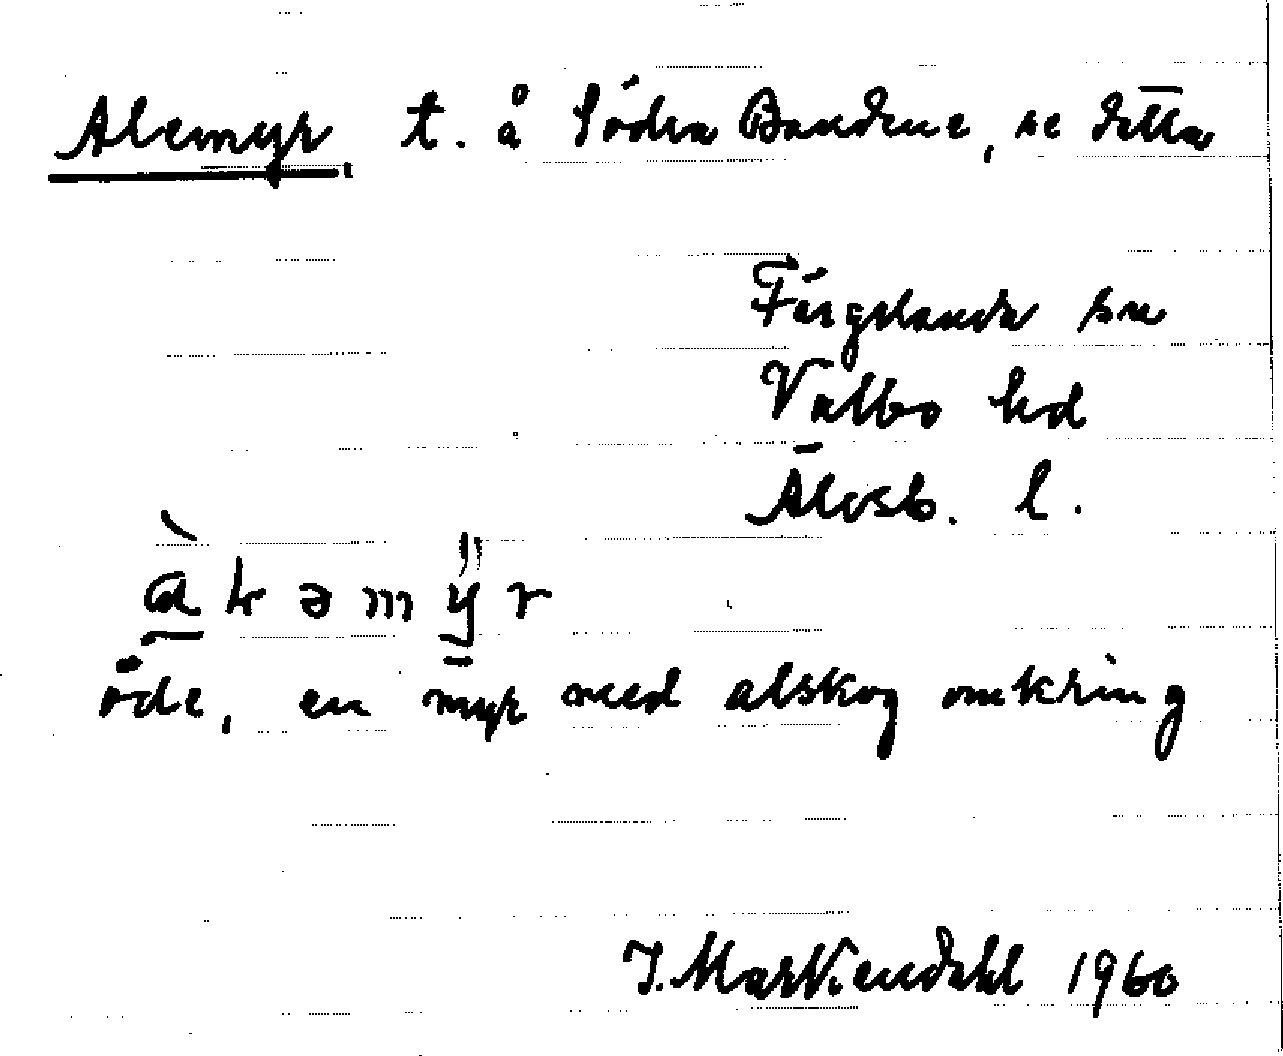 Alemyr t. å Södra Bandene, se detta
Färgelanda sn
Valbo hd
Älvsb. l.
öde, en myr med alskog omkring
J. Markendahl 1960